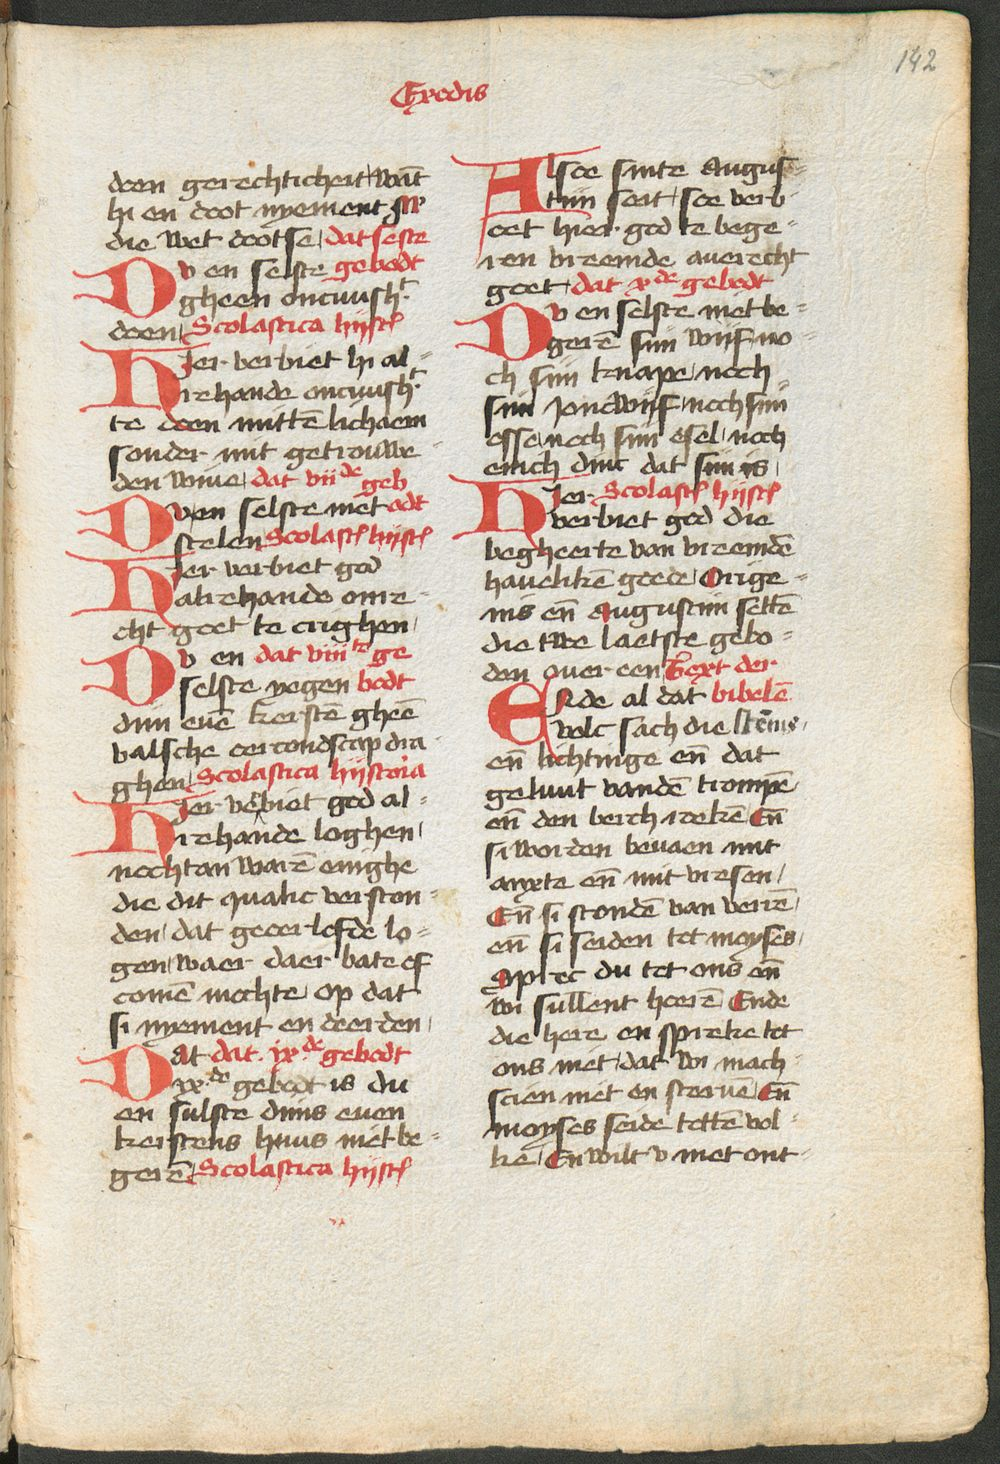 142
Exodis
doen gerechticheit wāt
hi en doot nyement mer
die wet dootse dat seste
Dv en selste gebodt
gheen oncuuscht
doen Scolastica hijst
Hier verbiet hi al-
rehande oncuuscht
te doen mittē lichaem
sonder mit getrouwe
den wiue dat viide geb
Dv en selste niet odt
stelen Scolast hijst
Hier verbiet god
alrehande onre-
cht goet te crighen
Dv en dat viiite ge
selste yegen bodt
dijn euē kerstē gheē
valsche oircondscap dra
ghen Scolastica hijstoria
Hier vbiet god al-
rehande loghen
nochtan warē enighe
die dit qualic verston-
den dat geoerlofde lo-
gen waer daer bate of
comē mochte op dat
si nyement en deerden
Dat dat ixde gebodt
ixde gebodt is du
en sulste dijns euen
kerstens huus niet be-
gerē Scolastica hijst
Alsoe sinte Augus-
tijn seit soe verb
oet hier god te bege-
ren vreemde auerecht
goet dat xde gebodt
Dv en selste niet be-
gerē sijn wijf no-
ch sijn knape noch
sijn joncwijf noch sijn
osse noch sijn esel noch
enich dinc dat sijn is
Hier Scolast hijst
verbiet god die
begheerte van vreemdē
hauelikē goede Orige-
nis eñ Augustijn settē
die twe laetste gebo-
den ouer een Text der
Ende al dat bibelē
volc sach die stēme
eñ lichtinge eñ dat
geluut vandē trompē
eñ den berch rokē Eñ
si worden beuaen mit
anxte eñ mit vresen
Eñ si stondē van verrē
eñ si seiden tot moyses
Sprec du tot ons eñ
wi sullent hoerē Ende
die here en spreke tot
ons niet dat wi mach-
scien niet en steruē Eñ
moyses seide tottē vol-
ke En wilt v niet ont-